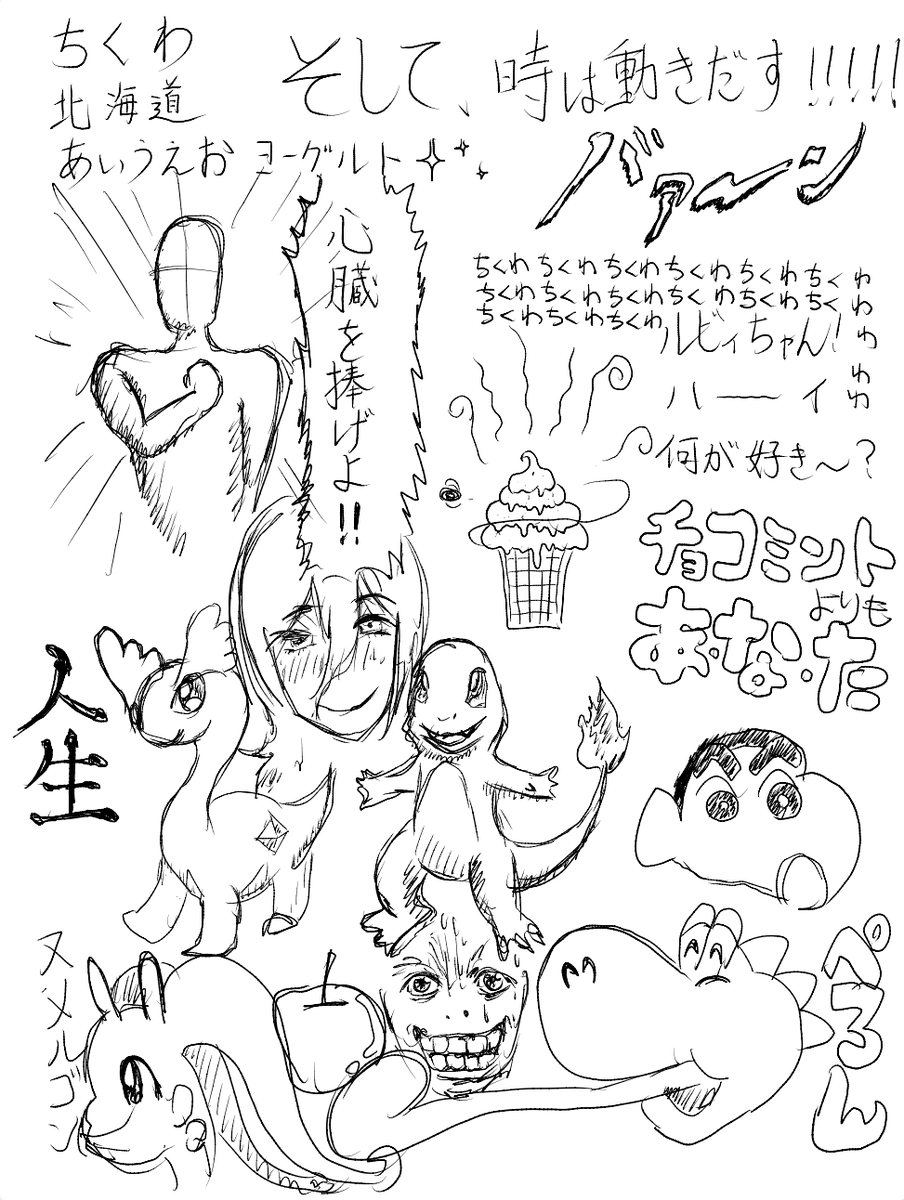 ちくわ
北海道
あいうえお ヨーグルト
そして、時は動きだす!!!!!
バァーン
心臓を捧げよ!!
ちくわちくわちくわちくわちくわちくわ
ちくわちくわちくわちくわちくわちく
ちくわちくわちくわ
わわわわわ
ルビィちゃん!
ハーイ
何が好き〜?
チョコミント
よりも
あ・な・た
人生
ヌメルゴン
ぺろん